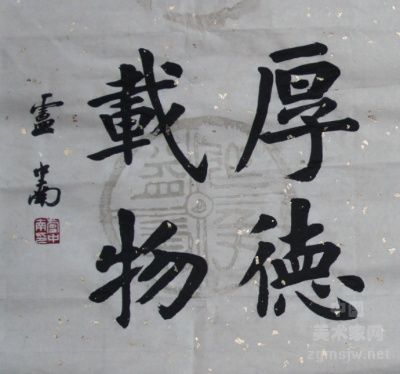 厚德
載物
盧中南
中国
美术家网
zgmsjw.net